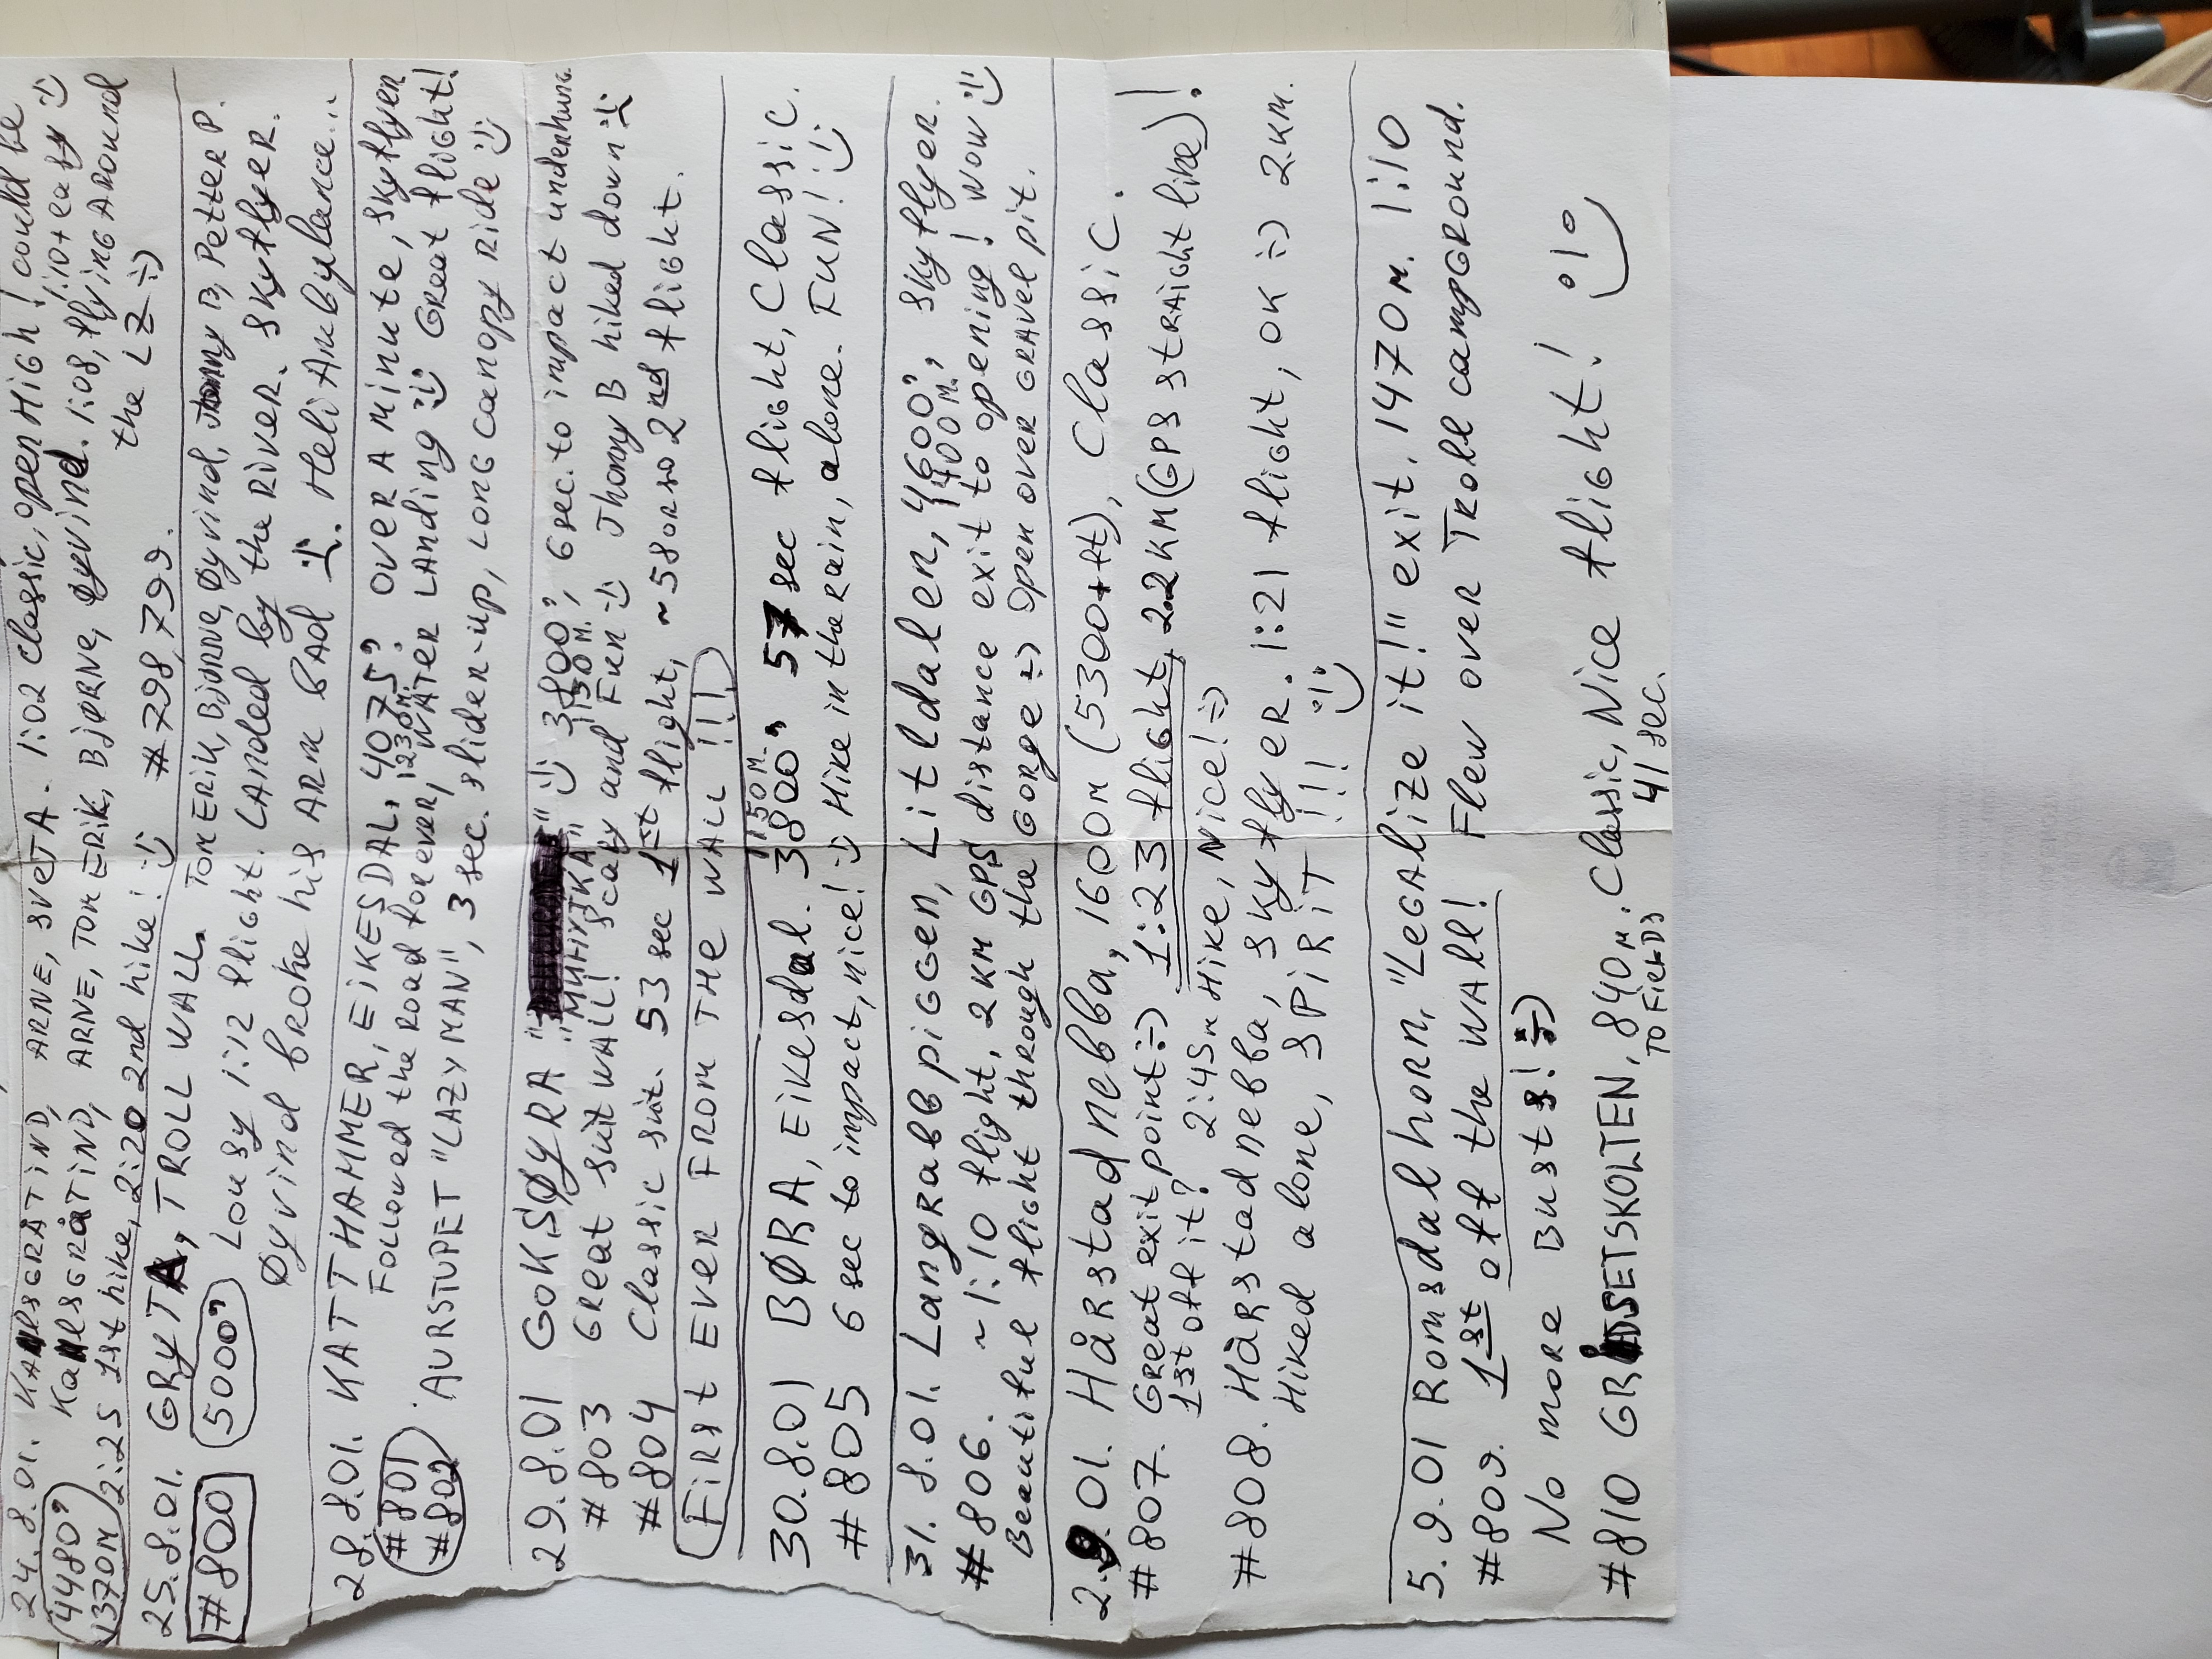 24.8.01. KALSGRÅTIND, ARNE, SVETA. 1:02 classic, open High! could be
4480' Kalsgråtind, ARNE, TOM ERIK, BJØRNE, ØYVIND. 1:08, flying AROUND
1:10+ easy :)
1370M 2:25 1st hike, 2:20 2nd hike! :) #798,799. the LZ :)
25.8.01. GRYTA, TROLL WALL. TOM ERIK, BJØRNE, ØYVIND, Jhonny B, Petter P.
#800 5000' Lousy 1:12 flight. LANDED by the RIVER. SKYflyER.
Øyvind broke his ARM BAD :(. Heli Ambylance...
28.8.01. KATTHAMMER, EIKESDAL, 4075' OVER A minute, skyflyer
1230M.
#801 Followed the road forever, WATER LANDING :) GREAT flight!
#802 AURSTUPET "LAZY MAN", 3 sec. slider-up, LONG canopy RIDE :)
29.8.01 GOKSØYRA " " :) 3800', 6 sec. to impact underhung.
"МИНИТКА" 1150M.
#803 GREAT suit WALL! Scary and Fun :) Jhonny B hiked down :(
#804 Classic suit. 53 sec 1st flight, ~58 or so 2nd flight.
FIRST EVER FROM THE WALL !!!
30.8.01 BØRA, EIKESdal. 3800', 57 sec flight, Classic.
1150M.
#805 6 sec to impact, nice! :) Hike in the rain, alone. FUN! :)
31.8.01. Langrabbpiggen, Litldalen, 4600', skyflyer.
1400M.
#806. ~1:10 flight, 2KM GPS distance exit to opening! Wow :)
Beautiful flight through the GORGE :) Open over GRAVEL pit.
2.9.01. Hårstadnebba, 1600m (5300+ft), Classic.
#807. GREAT exit point :) 1:23 flight, 2.2KM (GPS STRAIGHT line)!
1st off it? 2:45m Hike, Nice! :)
#808. Hårstadnebba, skyflyer. 1:21 flight, OK :) 2KM.
Hiked alone, SPIRIT !!! :)
5.9.01 Romsdalhorn, "LEGALIZE it!" exit. 1470M. 1:10
#809. 1st off the WALL! Flew over TROLL CAMPGROUND.
No more Busts! :)
#810 GRÅSETSKOLTEN, 840M. Classic, Nice flight! :)
TO FIELDS 41 sec.